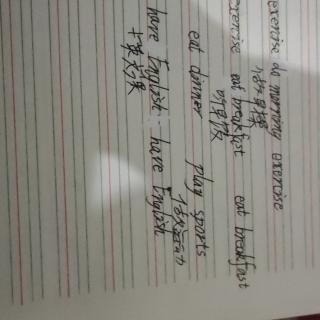 exercise do morning exercise
做早操
exercise eat breakfast eat breakfast
吃早饭
eat dinner play sports
做运动
have English have English
上英语课